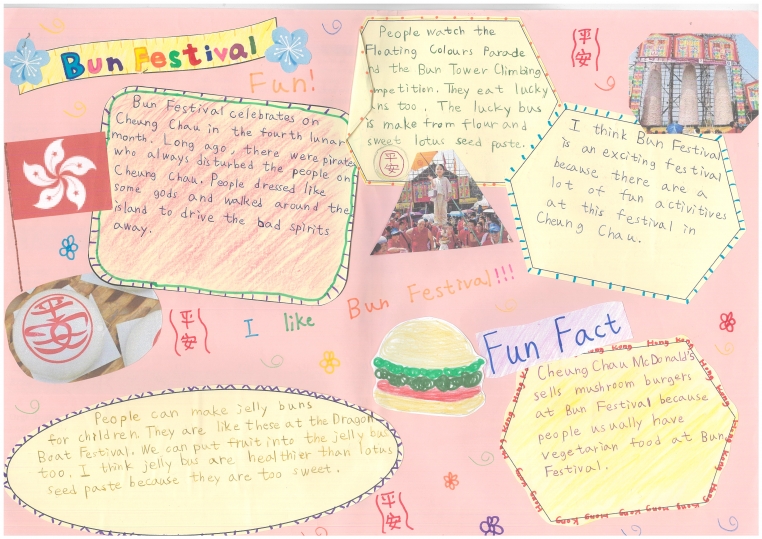 Bun Festival
Fun!
Bun Festival celebrates on
Cheung Chau in the fourth lunar
month. Long ago, there were pirate
who always disturbed the people on
Cheung Chau. People dressed like
some gods and walked around the
island to drive the bad spirits
away.
People watch the
Floating Colours Parade
nd the Bun Tower Climbing
mpetition. They eat lucky
ns too. The lucky bus
is make from flour and
sweet lotus seed paste.
平安
平安
I think Bun Festival
is an exciting festival
because there are a
lot of fun activities
at this festival in
Cheung Chau.
平安
平安
I like Bun Festival!!!
Fun Fact
Cheung Chau McDonald's
sells mushroom burgers
at Bun Festival because
people usually have
vegetarian food at Bun
Festival.
Hong Kong Hong Kong Hong Kong Hong Kong
People can make jelly buns
for children. They are like these at the Dragon
Boat Festival. We can put fruit into the jelly bus
too. I think jelly bus are healthier than lotus
seed paste because they are too sweet.
平安